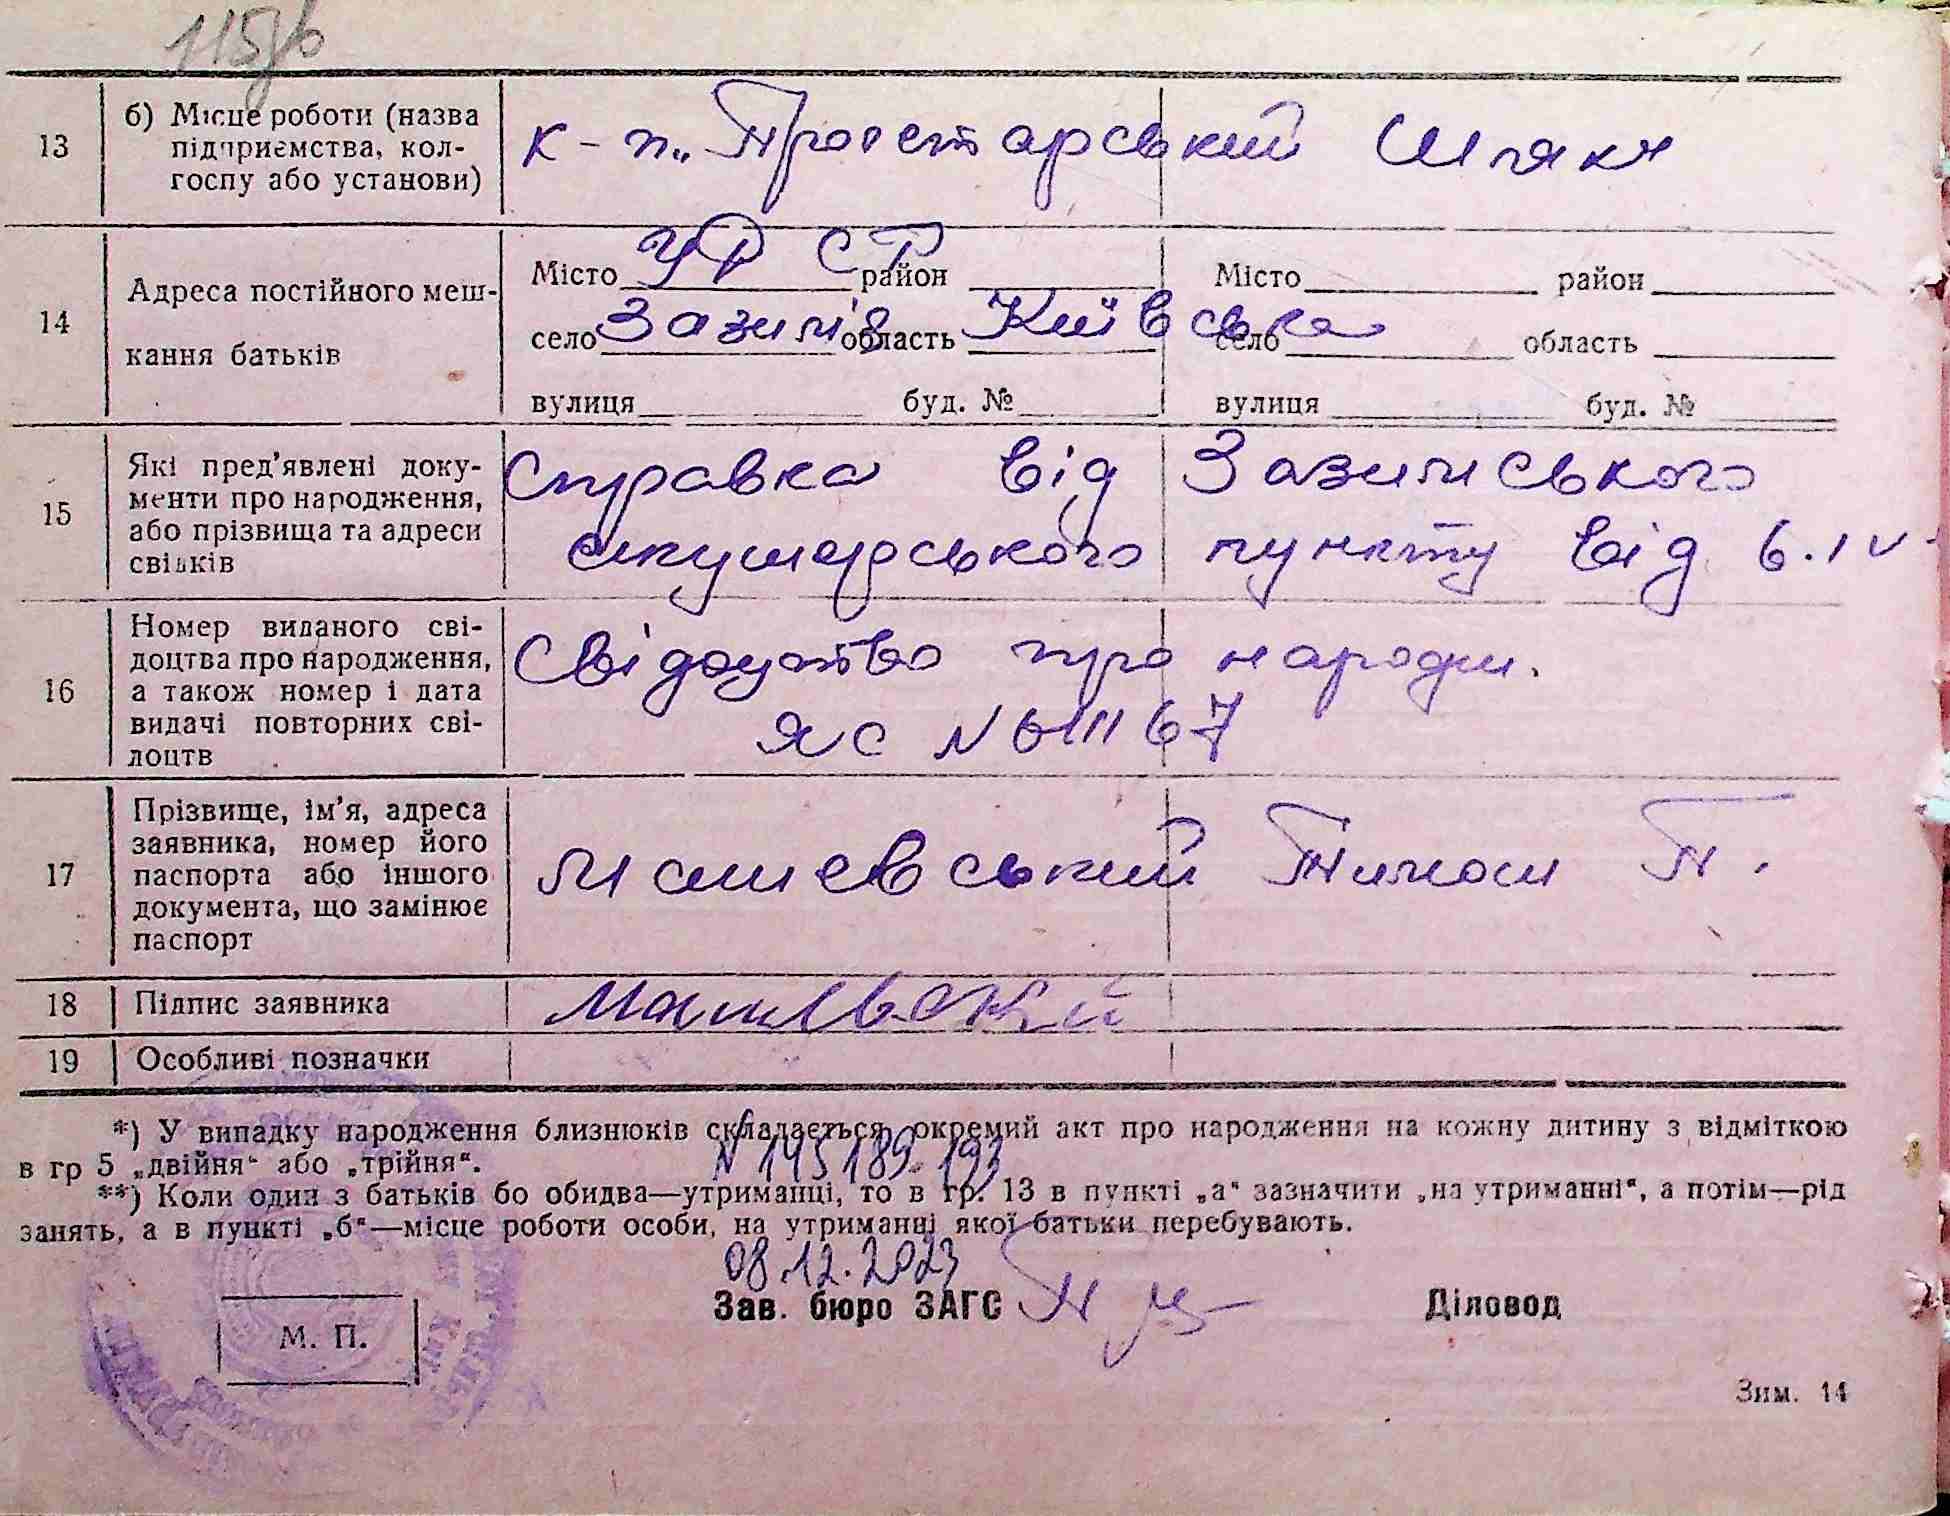 115/б
13 б) Місце роботи (назва підприємства, кол-
госпу або установи)
к-п „Пролетарський Шлях
14 Адреса постійного меш-
кання батьків
Місто УРСР район Місто район
село Зазимів область Київська село область
вулиця буд. № вулиця буд. №
15 Які пред’явлені доку-
менти про народження,
або прізвища та адреси
свідків
Справка від Зазимського
акушерського пункту від 6.IV.
16 Номер виданого сві-
доцтва про народження,
а також номер і дата
видачі повторних сві-
доцтв
Свідоцтво про народж.
ЯС N 611167
17 Прізвище, ім’я, адреса
заявника, номер його
паспорта або іншого
документа, що замінює
паспорт
П.
18 Підпис заявника
19 Особливі позначки
*) У випадку народження близнюків складається окремий акт про народження на кожну дитину з відміткою
в гр 5 „двійня“ або „трійня“.
N 145189-193
**) Коли один з батьків бо обидва—утриманці, то в гр. 13 в пункті „а“ зазначити „на утриманні“, а потім—рід
занять, а в пункті „б“—місце роботи особи, на утриманні якої батьки перебувають.
08.12.2023
Зав. бюро ЗАГС Діловод
М. П.
Зим. 14